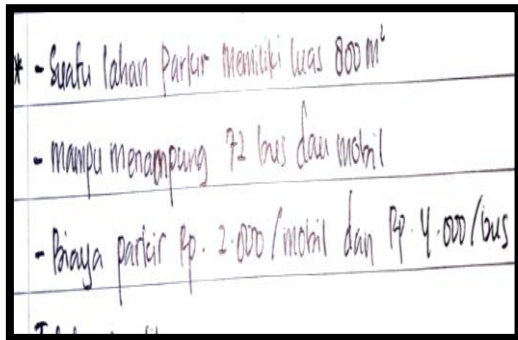 * - Suatu lahan parkir memiliki luas 800 m²
- mampu menampung 72 bus dan mobil
- Biaya parkir Rp. 2.000/mobil dan Rp. 4.000/bus